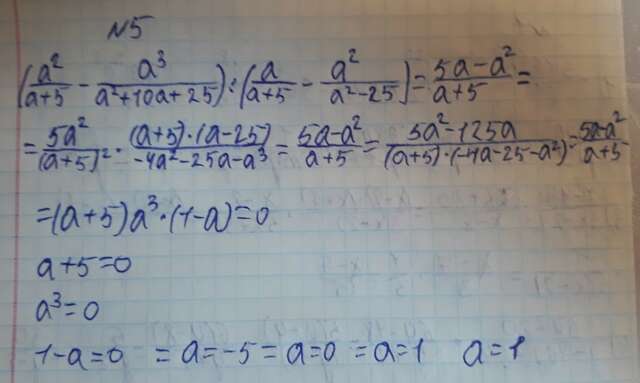 №5
(a²/(a+5) - a³/(a²+10a+25)) : (a/(a+5) - a²/(a²-25)) = (5a-a²)/(a+5) =
= 5a²/(a+5)² · (a+5)·(a-25)/(-4a²-25a-a³) = (5a-a²)/(a+5) = (5a²-125a)/((a+5)·(-4a-25-a²)) = (5a-a²)/(a+5)
=(a+5)a³·(1-a)=0
a+5=0
a³=0
1-a=0 =a=-5=a=0 =a=1 a=1